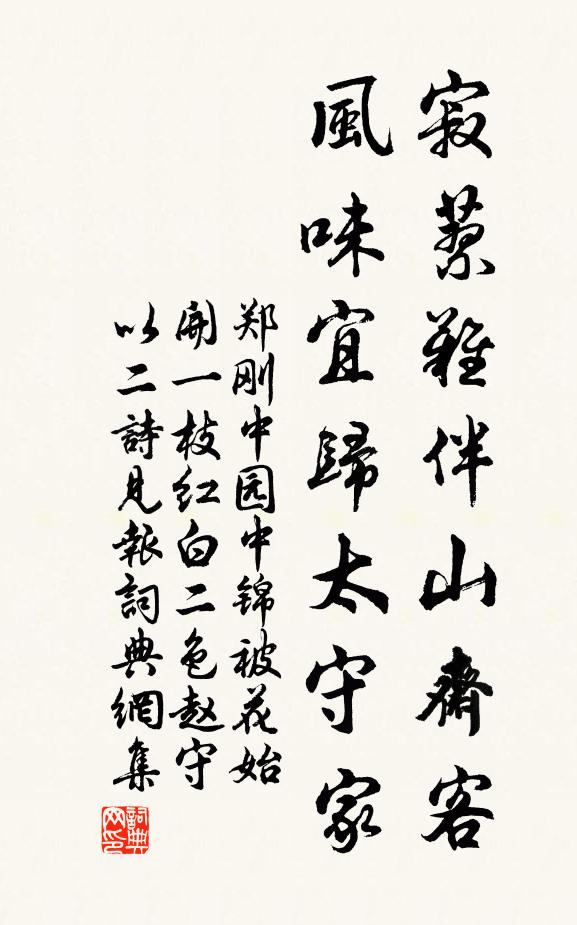 寂難伴山齋客
風味宜歸太守家
郑刚中园中锦被花始
開一枝红白二色赵守
以二詩見報詞典網集
詞典网印